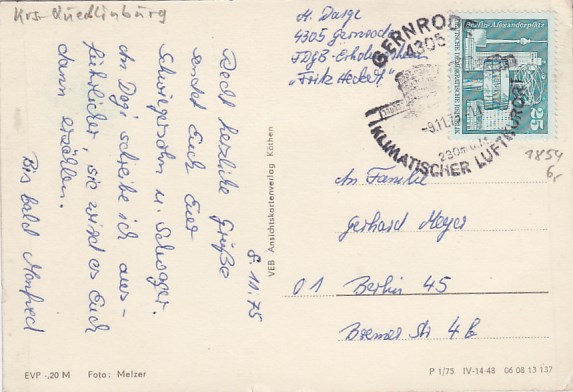 Krs. Quedlinburg
8.11.75
Recht herzliche Grüße
sendet Euch Euer
Schwiegersohn u. Schwager.
An Dagi schreibe ich aus-
führlicher, sie wird es Euch
dann erzählen.
Bis bald Manfred
M. Darge
4305 Gernrode
FDGB-Erholungsheim
"Fritz Heckert"
GERNRODE
4305
-9.11.75
KLIMATISCHER LUFTKURORT
Berlin-Alexanderplatz
25
1854
6,-
An Familie
Gerhard Meyer
01 Berlin 45
Bremer Str 4b
VEB Ansichtskartenverlag Köthen
EVP -,20 M Foto: Melzer
P 1/75 IV-14-48 06 08 13 137